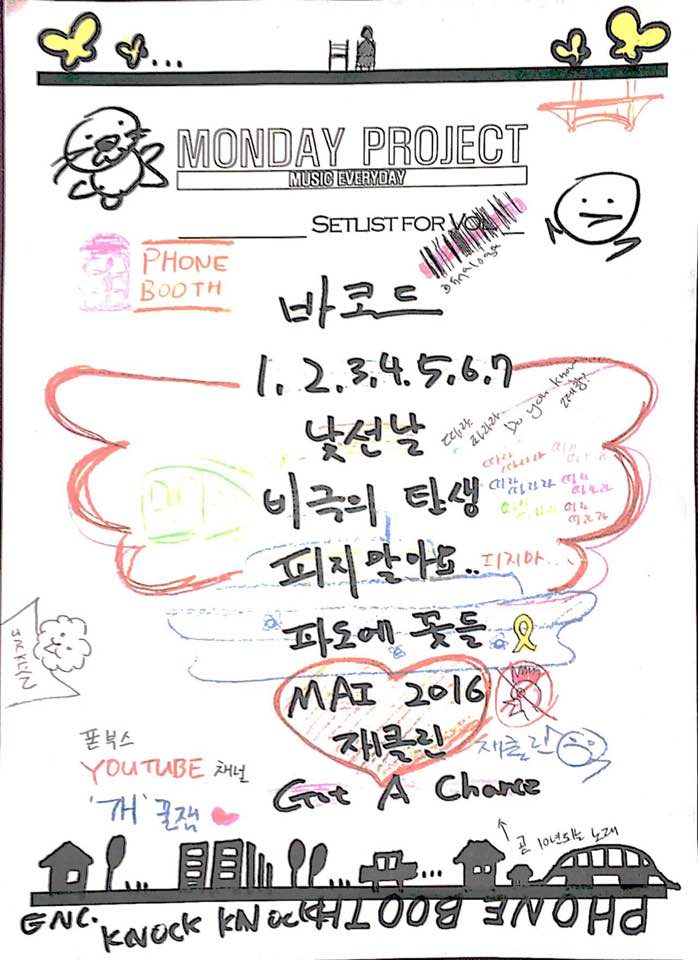 MONDAY PROJECT
MUSIC EVERYDAY
SETLIST FOR YOU
PHONE
BOOTH
바코드
1.2.3.4.5.6.7
낯선날
Do you know
따라
라라라
비극의 탄생
피지말아요..
피지마...
파도에 꽃들
MAI 2016
재클린
재클린
Got A Chance
폰부스
YOUTUBE 채널
'개' 꿀잼
곧 10년되는 노래
GNC.
KNOCK KNOCK
PHONE BOOTH